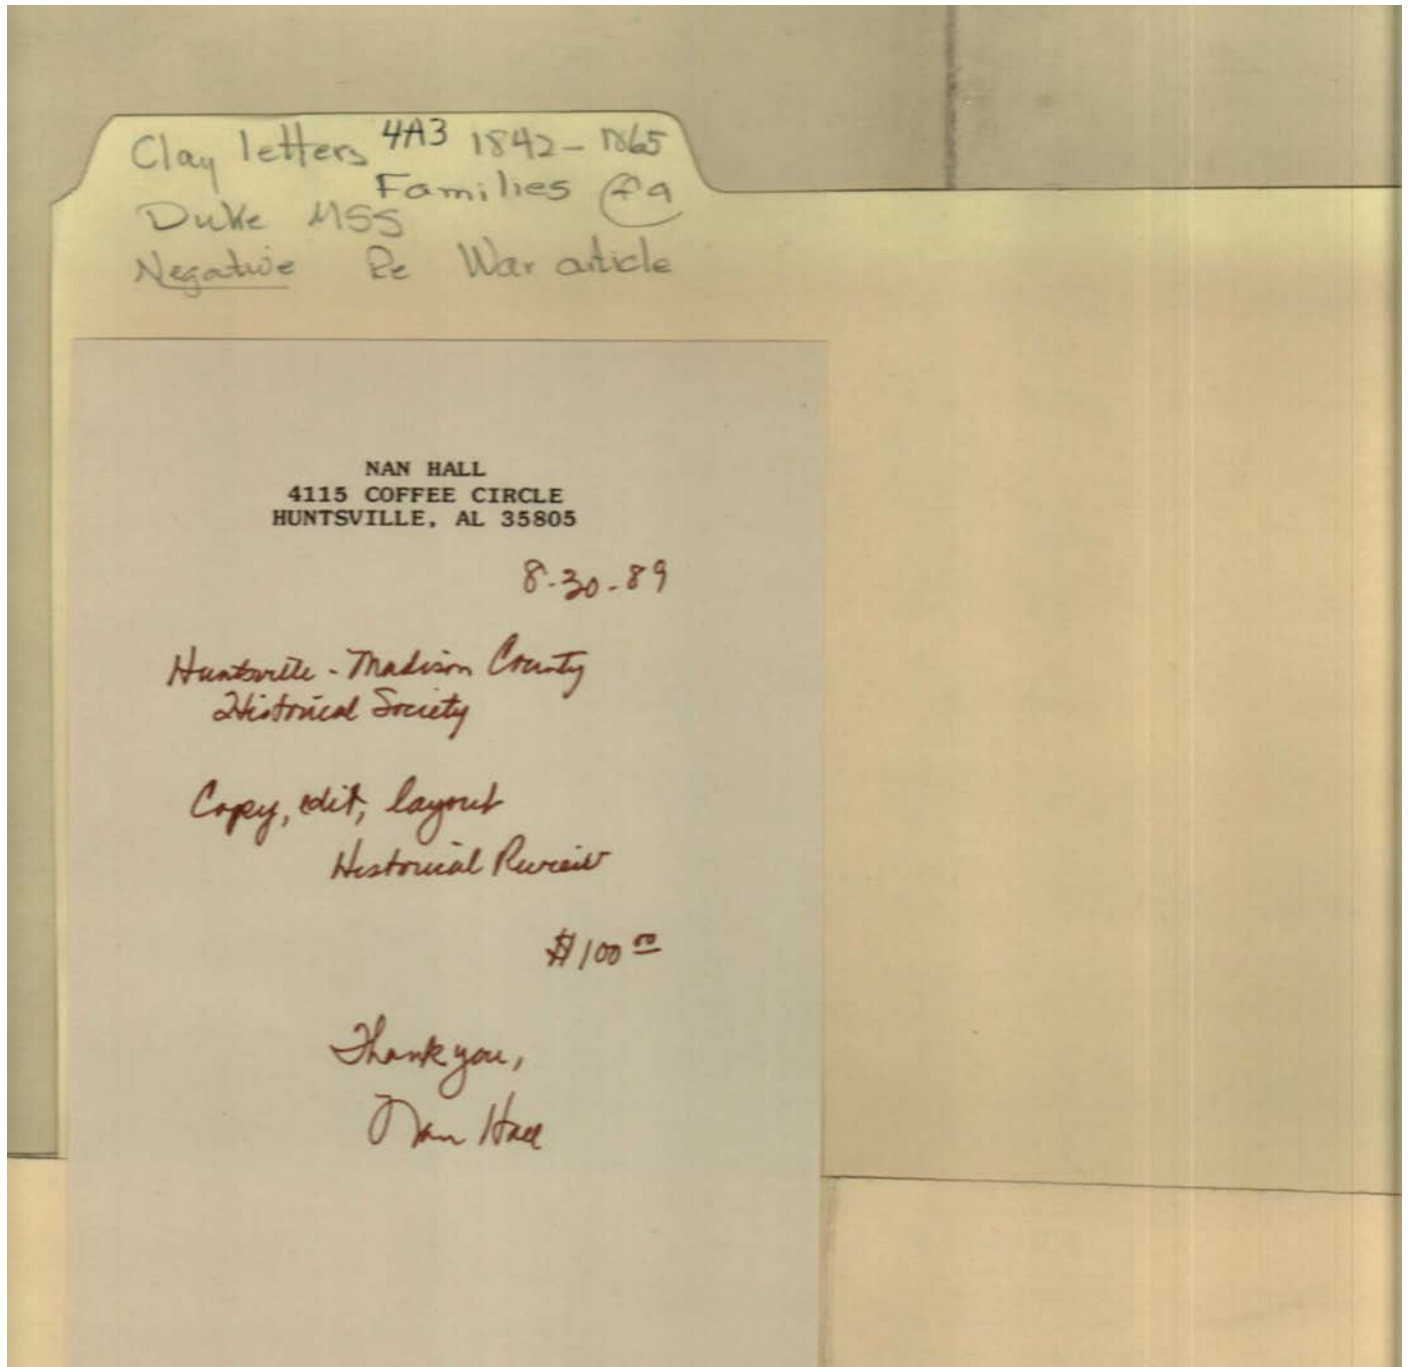 Clay letters 4A3 1842-1865
Families
Duke MSS
Negative Re War article
NAN HALL
4115 COFFEE CIRCLE
HUNTSVILLE, AL 35805
8-30-89
Huntsville-Madison County
Historical Society
Copy, edit, layout
Historical Review
$100 00
Thank you,
Nan Hall